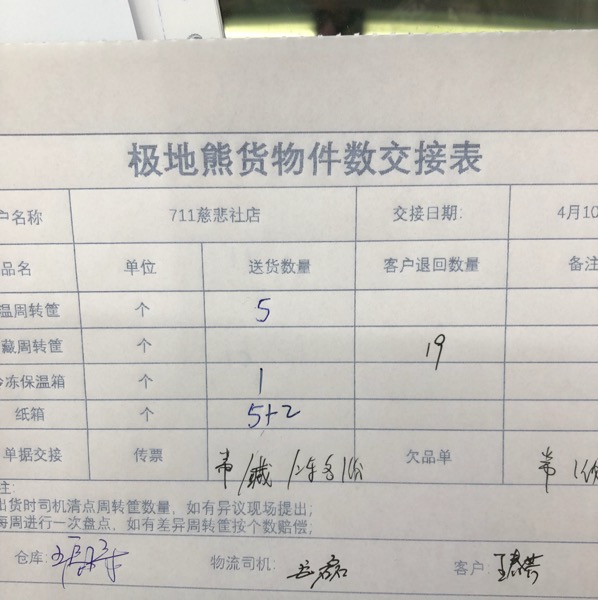 极地熊货物件数交接表
户名称 711慈悲社店 交接日期: 4月10
品名 单位 送货数量 客户退回数量 备注
温周转筐 个 5
藏周转筐 个 19
冷冻保温箱 个 1
纸箱 个 5+2
单据交接 传票 常/ /冻各1份 欠品单 常1份
注:
出货时司机清点周转筐数量，如有异议现场提出;
每周进行一次盘点，如有差异周转筐按个数赔偿;
仓库: 物流司机: 客户: